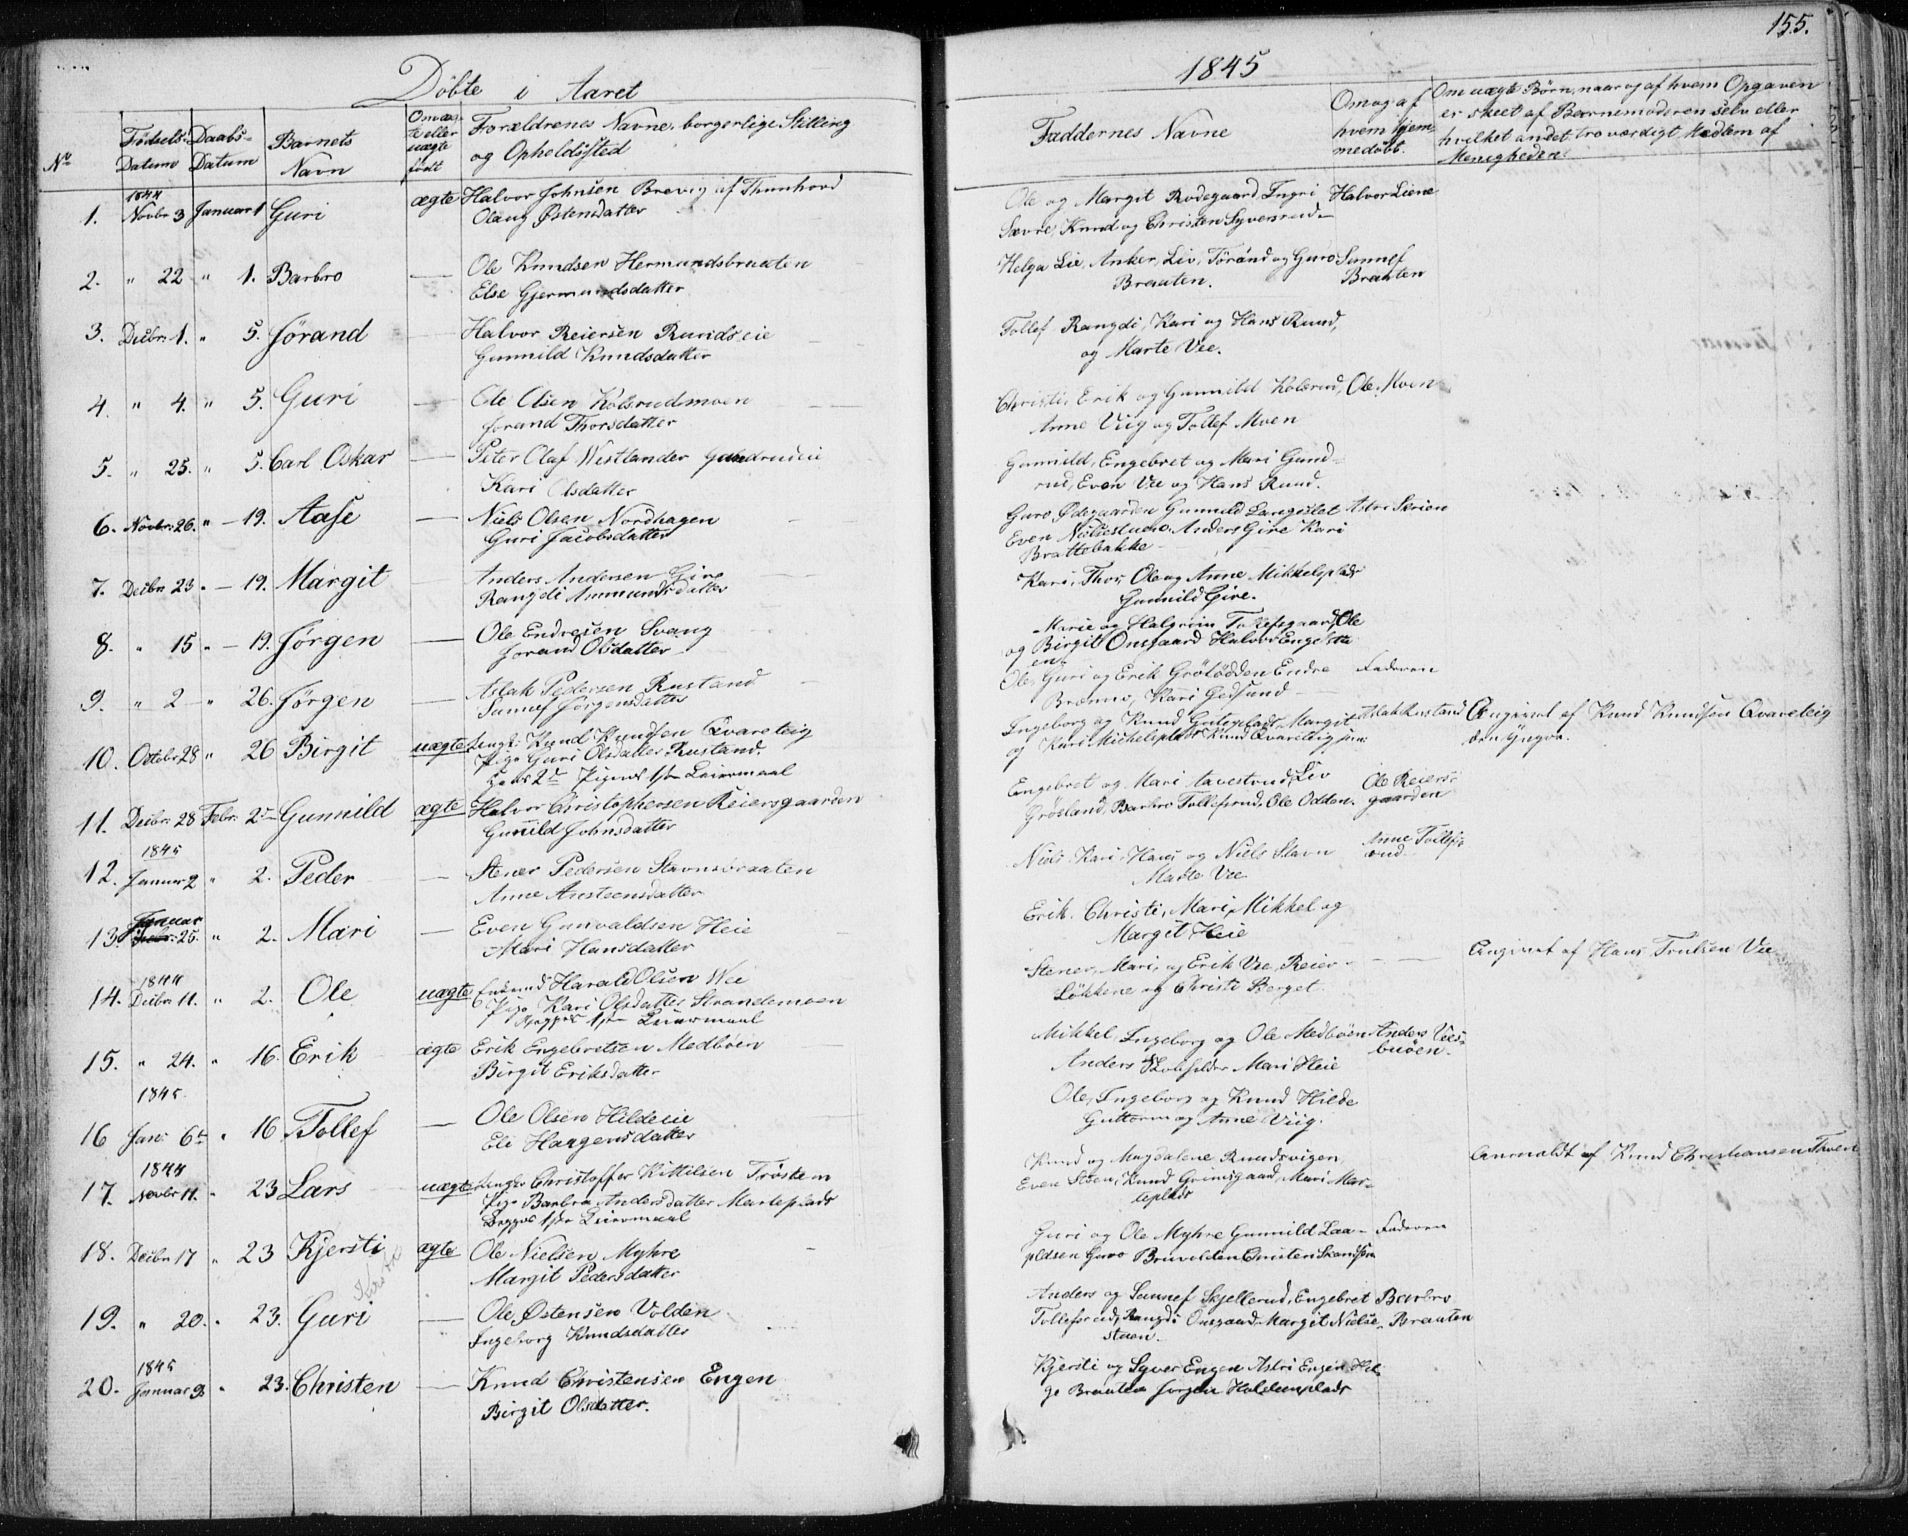 155.
Döbte i Aaret
1845
No
Födsels-Datum
Daabs-Datum
Barnets Navn
Om ægte eller uægte födt
Forældrenes Navne, borgerlige Stilling
og Opholdssted
Faddernes Navne
Om og af hvem hjemmedöbt.
Om uægte Börn, naar og af hvem Opgaven
er skeet af Barnemoderen selv eller
hvilket andet troværdigt Medlem af
Menigheden.
1844
1. Novbr 3 Januar 1 Guri ægte Halvor Johnsen Brevig af Thunhovd
Olaug Østensdatter
Ole og Margit Rudegaard Ingri Halvor Liene
Sævre, Knud og Christen Syversrud
2. " 22 " 1. Barbro — Ole Knudsen Hermundsbraaten
Else Gjermundsdatter
Helga Lie, Anker, Liv, Törånd og Guro Sunnef
Braaten. Braaten
3. Decbr. 1. " 5. Jørand — Halvor Reiersen Rundseie
Gunnild Knudsdatter
Tollef Rangdi, Kari og Hans Ruud,
og Marte Vee.
4. " 4. " 5. Guri — Ole Olsen Kolsrudsmoen
Jorand Thorsdatter
Christi, Erik og Gunnild Kolsrud, Ole Moen
Anne Viig og Tollef Moen
5. " 25. " 5. Carl Oskar — Peter Olaf Westlander Gundrudeie
Kari Olsdatter
Gunnild, Engebret og Mari Gund-
rud, Even Vee og Hans Ruud.
6. Novbr. 26. " — 19. Aase — Niels Olsen Nordhagen
Guri Jacobsdatter
Guro Ødegaarden Gunnild Langslet Astri Skrien
Even Nielsestuen, Anders Give Kari
Brattebakke
7. Decbr 23 " — 19. Margit — Anders Andersen Give
Rangdi Ammundsdatter
Kari, Thor, Ole og Anne Mikkelsplads
Gunnild Give.
8. " 15 " — 19. Jørgen — Ole Endresen Svang
Jorand Olsdatter
Marie og Halgrim Tollefsgaard, Ole
og Birgit Onsgaard Halvor Engesette
en
9. " 2 — " 26. Jørgen — Aslak Pedersen Rustand
Sunnef Jörgensdatter
Ole, Guri og Erik Grötödden Endre Faderen
Bromo, Kari Gedsund
10. Octobr 28 " 26 Birgit uægte Ungk. Knud Knudsen Qvareteig
Pige Guri Olsdatter Rustand
hans 2det Pigens 1ste Leiermaal
Ingeborg og Knud Guteplads Margit Aslak Rustand
og Kari Michelsplads Knud Qvareteig jun:
Angivet af Knud Knudsen Qvareteig
den yngre.
11. Decbr: 28 Febr: 2 — Gunnild ægte Halvor Christophersen Reiersgaarden
Gunild Johnsdatter
Engebret og Mari Liv Ole Reiers-
Grösland, Barbro Tollefsrud, Ole Odden. gaarden
1845
12. Januar 2 " 2. Peder — Stener Pedersen Stavnsbraaten
Anne Arnsteensdatter
Niels, Kari, Hans og Niels Stavn Anne Tollefs
Marte Vee rud
13. Januar 25. " 2. Mari — Even Gunvaldsen Heie
Mari Hansdatter
Erik, Christi, Mari, Mikkel og
Margit Heie
1844
14. Decbr 11. " 2. Ole uægte Enkemd Harald Olsen Wee
Pige Kari Olsdatter Strandemoen
Begges 1ste Leiermaal
Stener, Mari, og Erik Vee, Reier
Lökkene og Christi Berget.
Angivet af Hans Trulsen Vee
15. " 24. " 16. Erik ægte Erik Engebretsen Medböen
Birgit Eriksdatter
Mikkel, Ingeborg og Ole Medböen Anders Vees-
Anders Mari Heie buöen.
1845.
16 Jan: 6te " 16. Tollef — Ole Olsen Hildeeie
Eli Haagensdatter
Ole, Ingeborg og Knud Hilde
Guttorm og Anne Viig.
1844
17. Novbr 11. " 23 Lars uægte Ungkr Christoffer Kittilsen Tröstem
Pige Barbra Andersdatter Marteplads
Begges 1ste Leiermaal
Knud og Magdalene Ruudsvigen,
Even Steen, Knud Grimsgaard, Mari Mar-
teplads
Anmeldt af Knud Christiansen Thoen
18. Decbr 17 " 23 Kjersti ægte Ole Nielsen Myhre
Margit Pedersdatter
Guri og Ole Myhre Gunnild Laa- Faderen
pldsen Guro Bruvolden Christen
19. " 20. " 23. Guri — Ole Østensen Volden
Ingeborg Knudsdatter
Anders og Sunnef Skjellerud, Engebret Barbro
Tollefsrud, Rangdi Onsgaard Margit Nielse- Braaten
stuen.
1845
20. Januar 9 " 23. Christen — Knud Christensen Engen
Birgit Olsdatter.
Kjersti og Syver Engen Astri Engen Hel-
ge Braaten Jørgen Haldumsplads